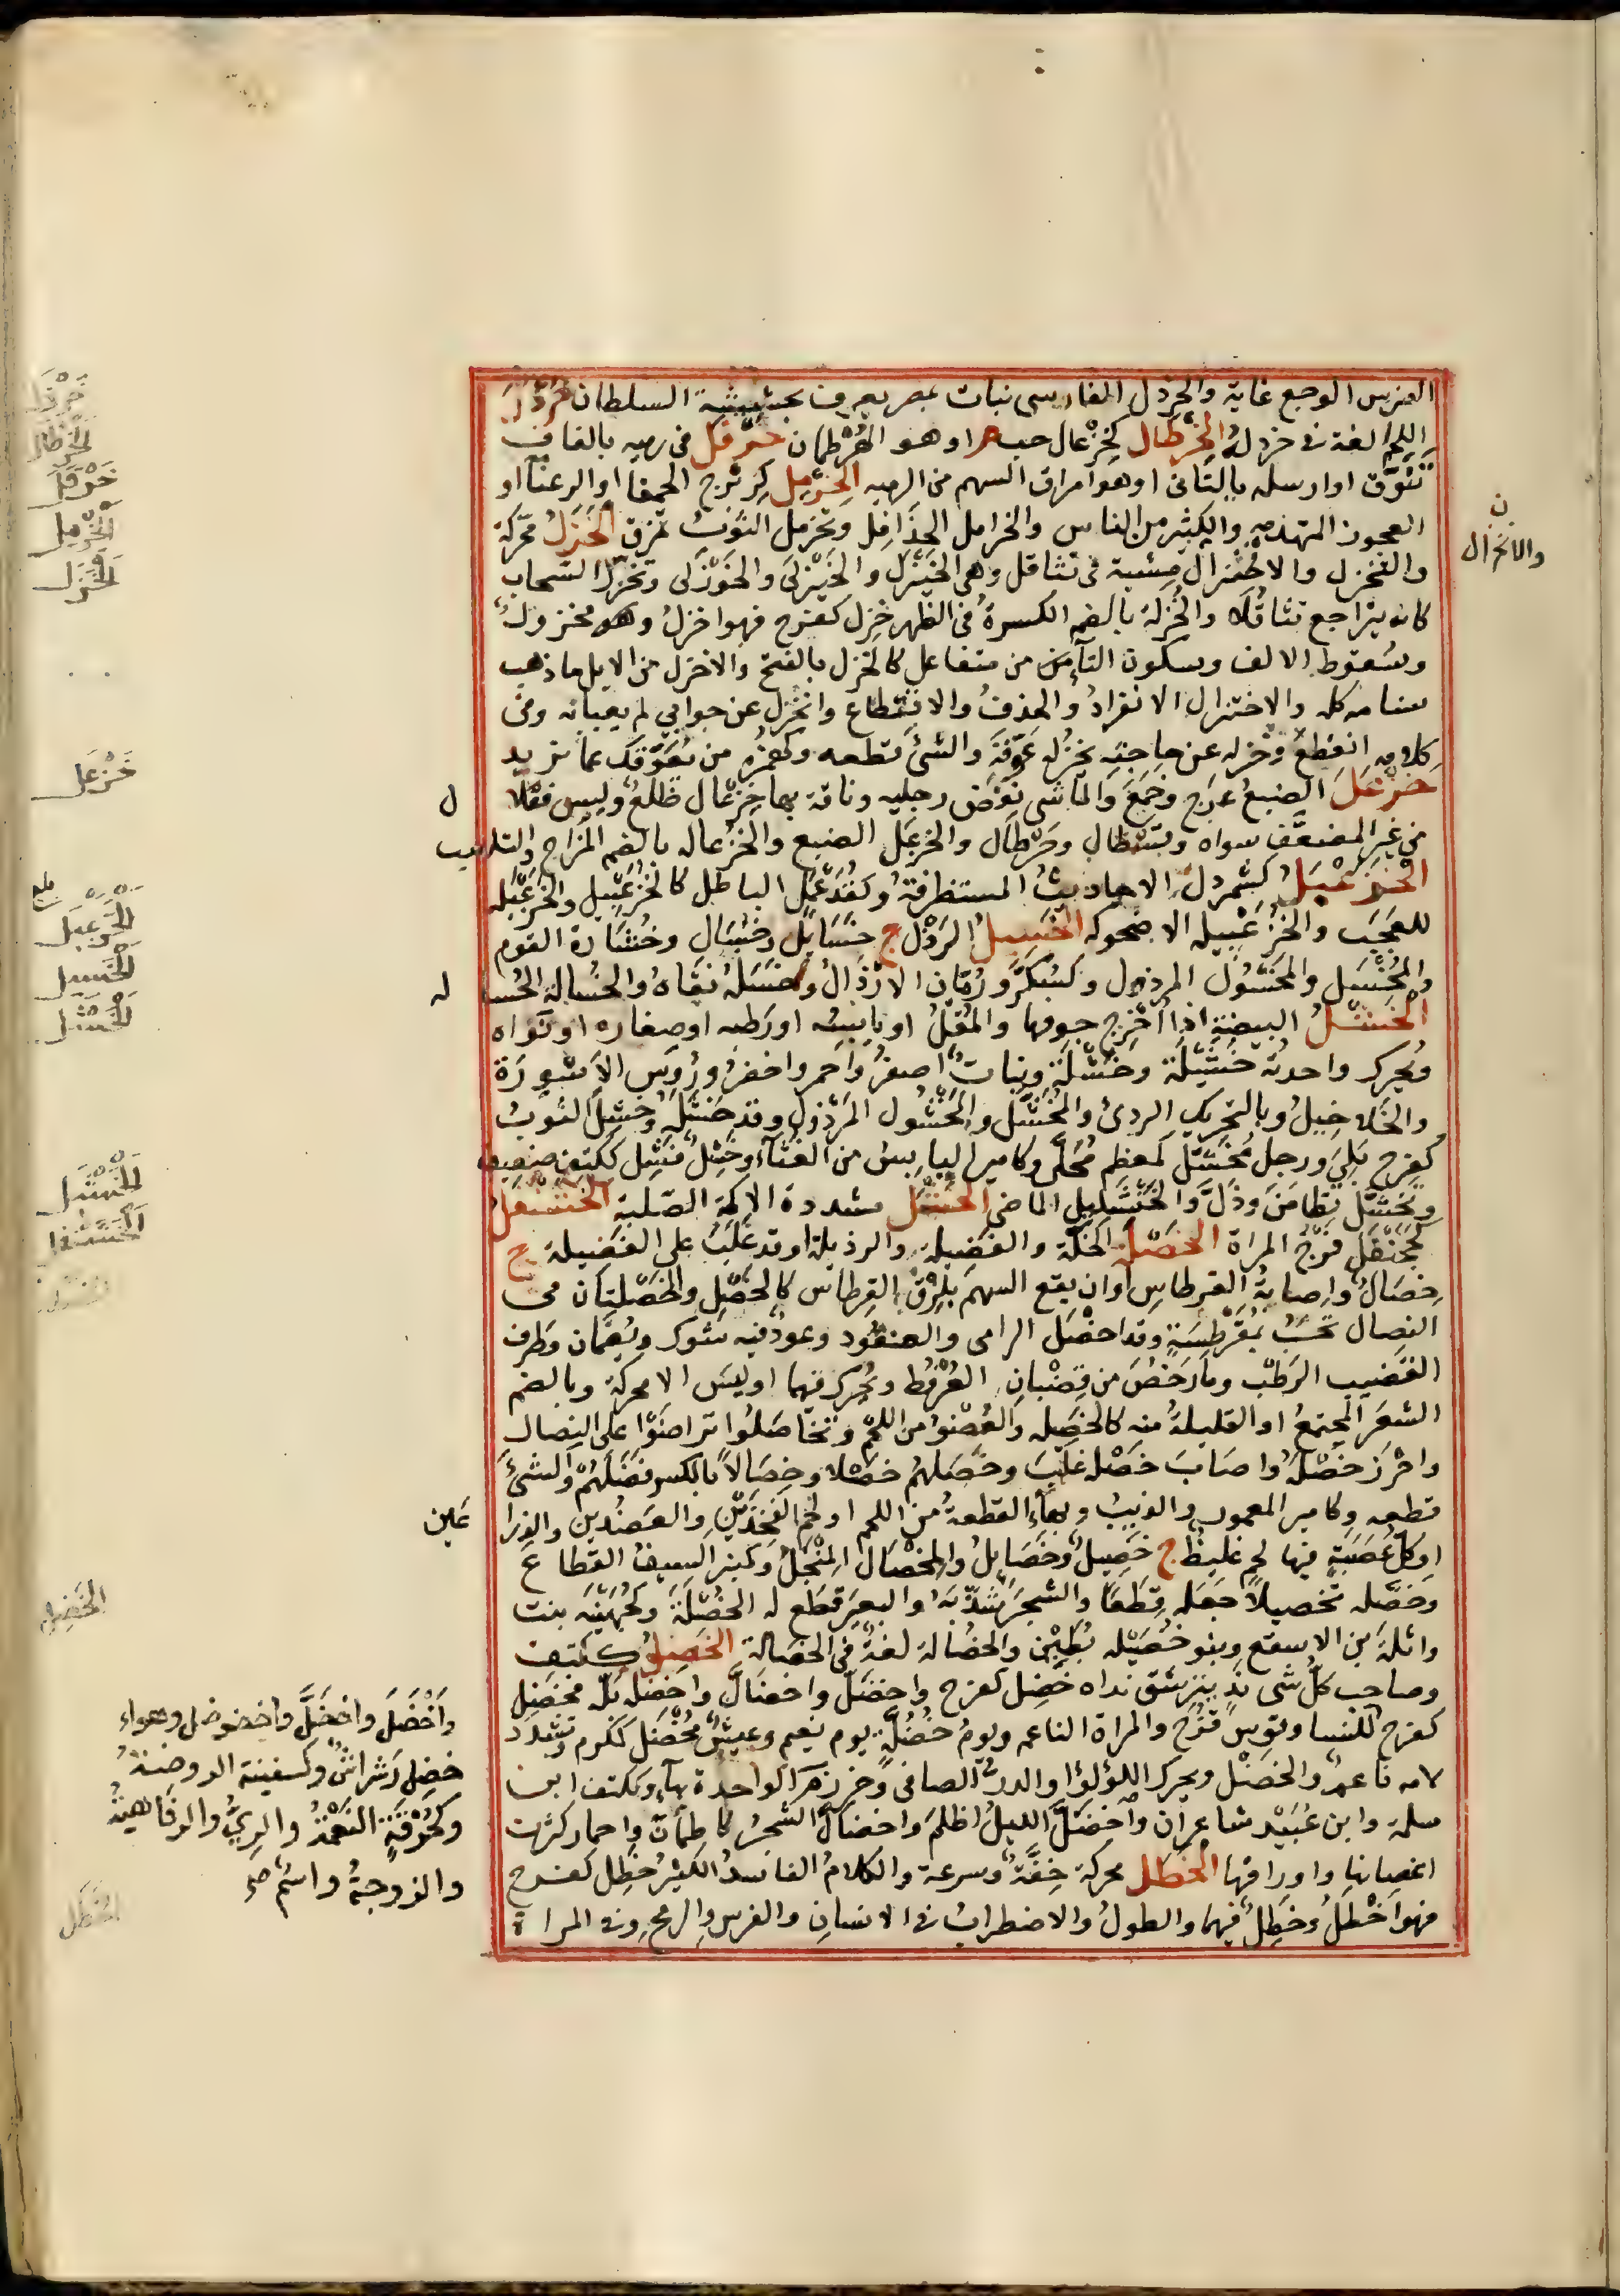 الضرس الوجع غاية والخردل الفارسى نبات بمصر يعرف بحشيشة السلطان خرذل
اللحم لغة فى خردله الخرطال كخزعال حب م او هو الهرطمان خرقل فى رميه بالقاف
تنوق او ارسله بالتانى او هو امراق السهم من الرميه الخرمل كزبرج الحمقا او الرعنآ او
العجوز المتهدمه والكثير من الناس والخرامل الخذافل وتخرمل الثوب تمزق الخزل محركة
والتخزل والاختزال مشية فى تثاقل وهى الخيزل والخيزلى والخوزلى وتخزل السحاب
كانه يتراجع تثاقلا والخزلة بالضم الكسرة فى الظهر خزل كفرح فهو اخزل وهو مخزول
وسقوط الالف وسكون التآ من متفاعل كالخزل بالفتح والاخزل من الابل ما ذهب
سنامه كله والاختزال الانفراد والحذف والاقتطاع وانخزل عن جوابي لم يعبا به وفى
كلامه انقطع وخزله عن حاجته يخزله عوقه والشئ قطعه وكهمزه من يعوقك عما تريد
خزعل الضبع عرج وخمع والماشى نفض رجليه وناقة بها خزعال ظلع وليس فعلال
من غير المضعف سواه وقسطال وخرطال والخزعل الضبع والخزعاله بالضم المزاح والتلاعب
الخزعبل كشمردل الاحاديث المستظرفة وكقذعمل الباطل كالخزعبيل والخزعبله
للعجب والخزعبيله الاضحوكه الخسيل الرذل ج خسايل وخسال وخشارة القوم
والمخسل والمخسول المرذول وكسكر ورمان الارذال وخسله نفاه والخسالة الحساله
الخشل البيضة اذا اخرج جوفها والمقل او يابسه او رطبه او صغاره او نواه
ويحرك واحدته خشلة وخشلة ونبات اصفر واحمر واخضر ورؤس الاسورة
والخلاخيل وبالتحريك الردئ والمخشل والمخشول المرذول وقد خشله وخشل الثوب
كفرح بلى ورجل مخشل كمعظم محلى وكامير اليابس من الغثآ وخشل فشل ككتف ضعيف
وتخشل تطامن وذل والخنشليل الماضى الخشبل مشددة الاكمة الصلبة الخشفل
كجحنفل فرج المراة الخصلة الخلة والفضيلة والرذيلة او قد غلب على الفضيلة ج
خصال واصابة القرطاس او ان يقع السهم بلزق القرطاس كالخصل والخصلتان فى
النصال تحسب بمقرطسة وقد اخصل الرامى والعنقود وعود فيه شوك ويضمان وطرف
القضيب الرطب وما رخص من قضبان العرفط ويحرك فيهما او ليس الا محركة وبالضم
الشعر المجتمع او القليلة منه كالخصله والعضو من اللحم وتخاصلوا تراهنوا على النصال
واحرز خصله واصاب خصله غلب وخصلهم خصلا وخصالا بالكسر فضلهم والشئ
قطعه وكامير المعمور والذنب وبهآ القطعة من اللحم او لحم الفخذين والعضدين والذراعين
او كل عصبة فيها لحم غليظ ج خصيل وخصايل والمخصال المنجل وكمنبر السيف القطاع
وخصله تخصيلا جعله قطعا والشجر شذبه والبعير قطع له الخصلة وكجهينه بنت
واثلة بن الاسقع وبنو خصيله بطين والخصالة لغة فى الحصالة الخضل ككتف
وصاحب كل شى ند يترشف نداه خضل كفرح واخضل واخضال واخضله بله مخضل
كفرح للنسا وقوس قزح والمراة الناعمه ويوم خضلة يوم نعيم وعيش مخضل كمكرم وتشدد
لامه ناعم والخضل ويحرك اللؤلؤ او الدر الصافى وخرز م الواحدة بهآ وككتف ابن
سلمة وابن عبيد شاعران واخضل الليل اظلم واخضال الشجر كاطمان واحمار كثرت
اغصانها واوراقها الخطل محركة خفة وسرعة والكلام الفاسد الكثير خطل كفرح
فهو اخطل وخطل فيهما والطول والاضطراب فى الانسان والفرس والرمح وفى المراة
ن
والانخزال
ل
له
عين
واخضل واخضل واخضوضل وشواء
خضل رشراش وكسفينة الروضة
وكحزقة النعمة والرى والرفاهية
والزوجة واسم صح
خرذل
الخرطال
خرقل
الخرمل
الخزل
خزعل
الخزعبل
الخسيل
الخشل
الخشبل
الخشفل
الخضل
الخطل